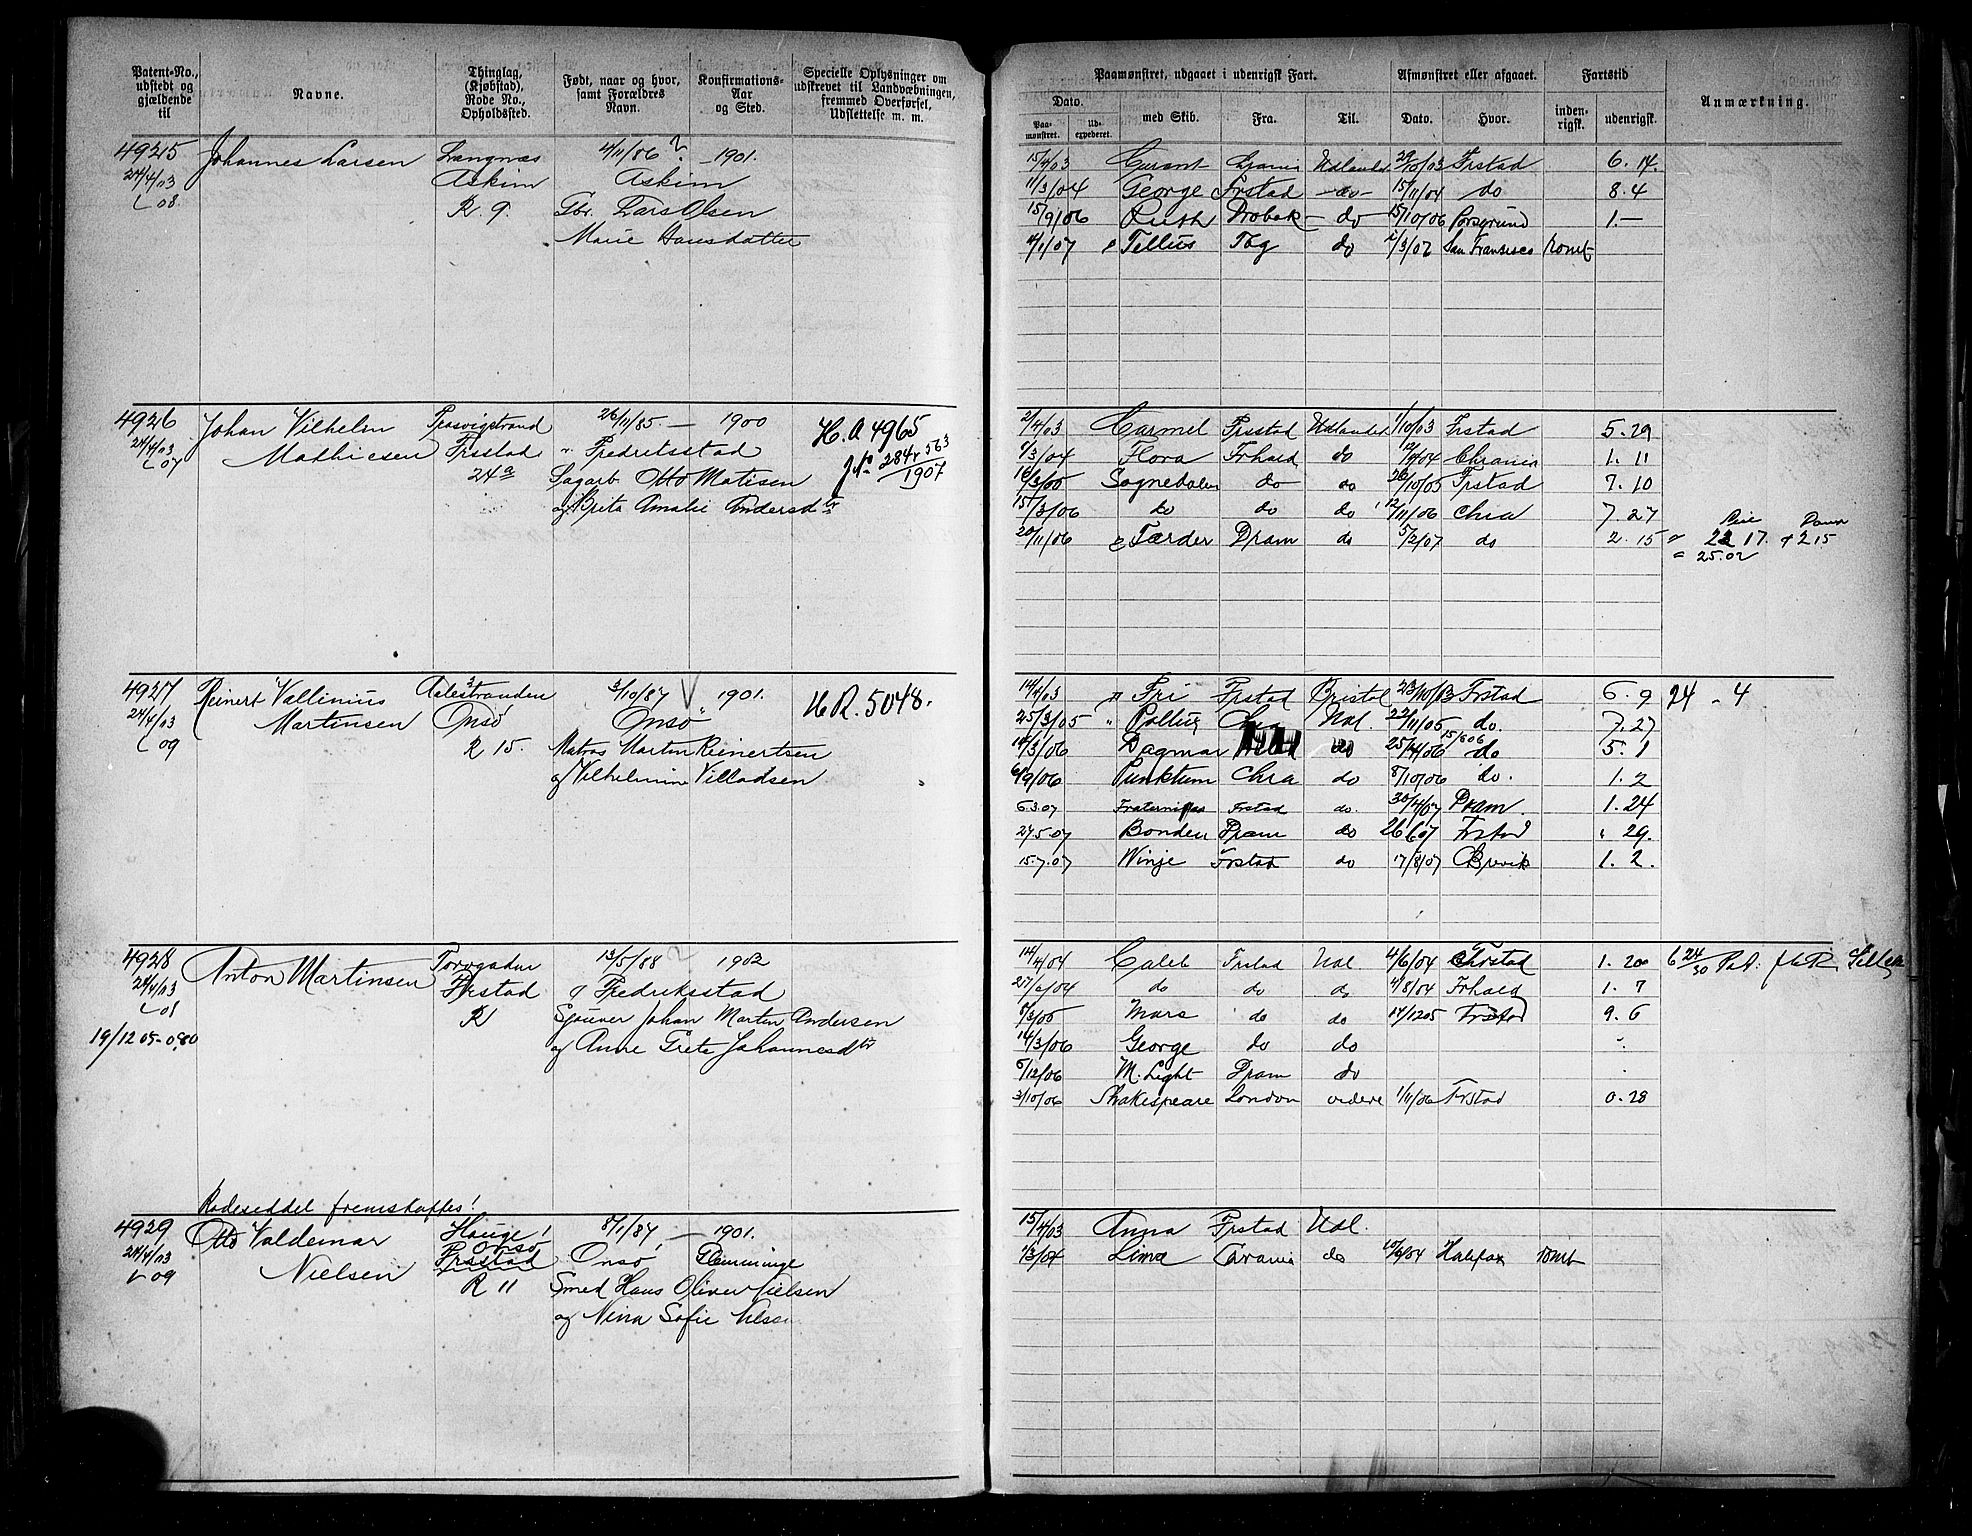 Patent-No., udstedt og gjældende til
Navne.
Thinglag, (Kjøbstad), Rode No., Opholdssted.
Født, naar og hvor, samt Forældres Navn.
Konfirmations-Aar og Sted.
Specielle Oplysninger om udskrevet til Landvæbningen, fremmed Overførsel, Udslettelse m. m.
Paamønstret, udgaaet i udenrigsk Fart.
Afmønstret eller afgaaet.
Fartstid
Anmærkning.
Dato.
Paamønstret.
Udexpederet.
med Skib.
Fra.
Til.
Dato.
Hvor.
indenrigsk.
udenrigsk.
4925 Johannes Larsen Langnæs 4/11/86 ? - 1901.
24/4/03 Askim Askim
L 08. R. 9. Gbr. Lars Olsen
Marie Hansdatter
15/4/03 Grania Udlandet 29/10/03 Frstad 6. 14.
11/3/04 George Frstad - do - 15/11/04 do 8. 4
15/9/06 Ruth Drobak - do - 15/10/06 Porsgrund 1. -
4/1/07 Tellus Tbg do 2/3/07 San Fransisco romt
4926 Johan Vilhelm Trosvigstrand 26/11/85. - 1900 H. A 4965
24/4/03 Mathiesen Frsstad Fredriksstad J. No 284 & 563
L 07 24a Sagarb Otto Matisen 1907
og Brita Amalie Andersdtr
21/4/03 Carmel Frsstad Udlandet 1/10/03 Frstad 5. 29
8/3/04 Flora Frhald do 12/4/04 Chrania 1. 11
16/3/05 Sognedalen do do 26/10/05 Frstad 7. 10
15/3/06 do do do 12/11/06 Chra 7. 27
20/11/06 Færder Dram do 5/2/07 do 2. 15 = 22 17. + 2 15
= 25.02
4927 Reinert Vallinius Aalestranden 3/10/87 1901. H R. 5048.
24/4/03 Martinsen Onsø Onsø
L 09 R 15. Matros Martin Reinertsen
og Vilhelmin Villadsen
14/4/03 " Fri Frstad Bristol 23/10/03 Frstad 6. 9 24 - 4
25/3/05 " Pollux Chra Udl. 22/11/05 do. 7. 27
14/3/06 Dagmar do 25/4/06 15/6 06 do 5. 1
6/9/06 Punktum Chra do 8/10/06 do. 1. 2
6.3.07 Fraternitas Frstad do. 30/4/07 Dram. 1. 24
27.5.07 Bonden Dram do 26 6 07 Frstad " 29.
15.7.07 Winje Frstad do 17/8/07 Brevik 1. 2.
4928 Anton Martinsen Torvgaden 13/5/88 ? 1902
24/4/03 Frstad Fredriksstad
L 08 R Sjouer Johan Martin Andersen
19/12 05 - og Anne Grete Johannesdtr
14/4/04 Caleb Frstad Udl. 4/6/04 Frstad 1. 20 6 24/30 Pat.
27/6/04 do do do 4/8/04 Frhald 1. 7
8/3/05 Mars do do 14/12 05 Frstad 9. 6
14/3/06 George do do
5/12/06 M. Light Dram do
3/10/06 Shakespeare London videre 1/11/06 Frstad 0. 28
Rodeseddel fremskaffes!
4929 Otto Valdemar Hauge! 8/1/87 - 1901.
24/4/03 Nielsen Onsø Frsstad Onsø Glemminge
L 09 R 11 Smed Hans Oliver Nielsen
og Nina Sofie Nilss
15/4/03 Anna Frstad Udl.
1/3/04 Lima Grania do 10/6/04 Halifax romt